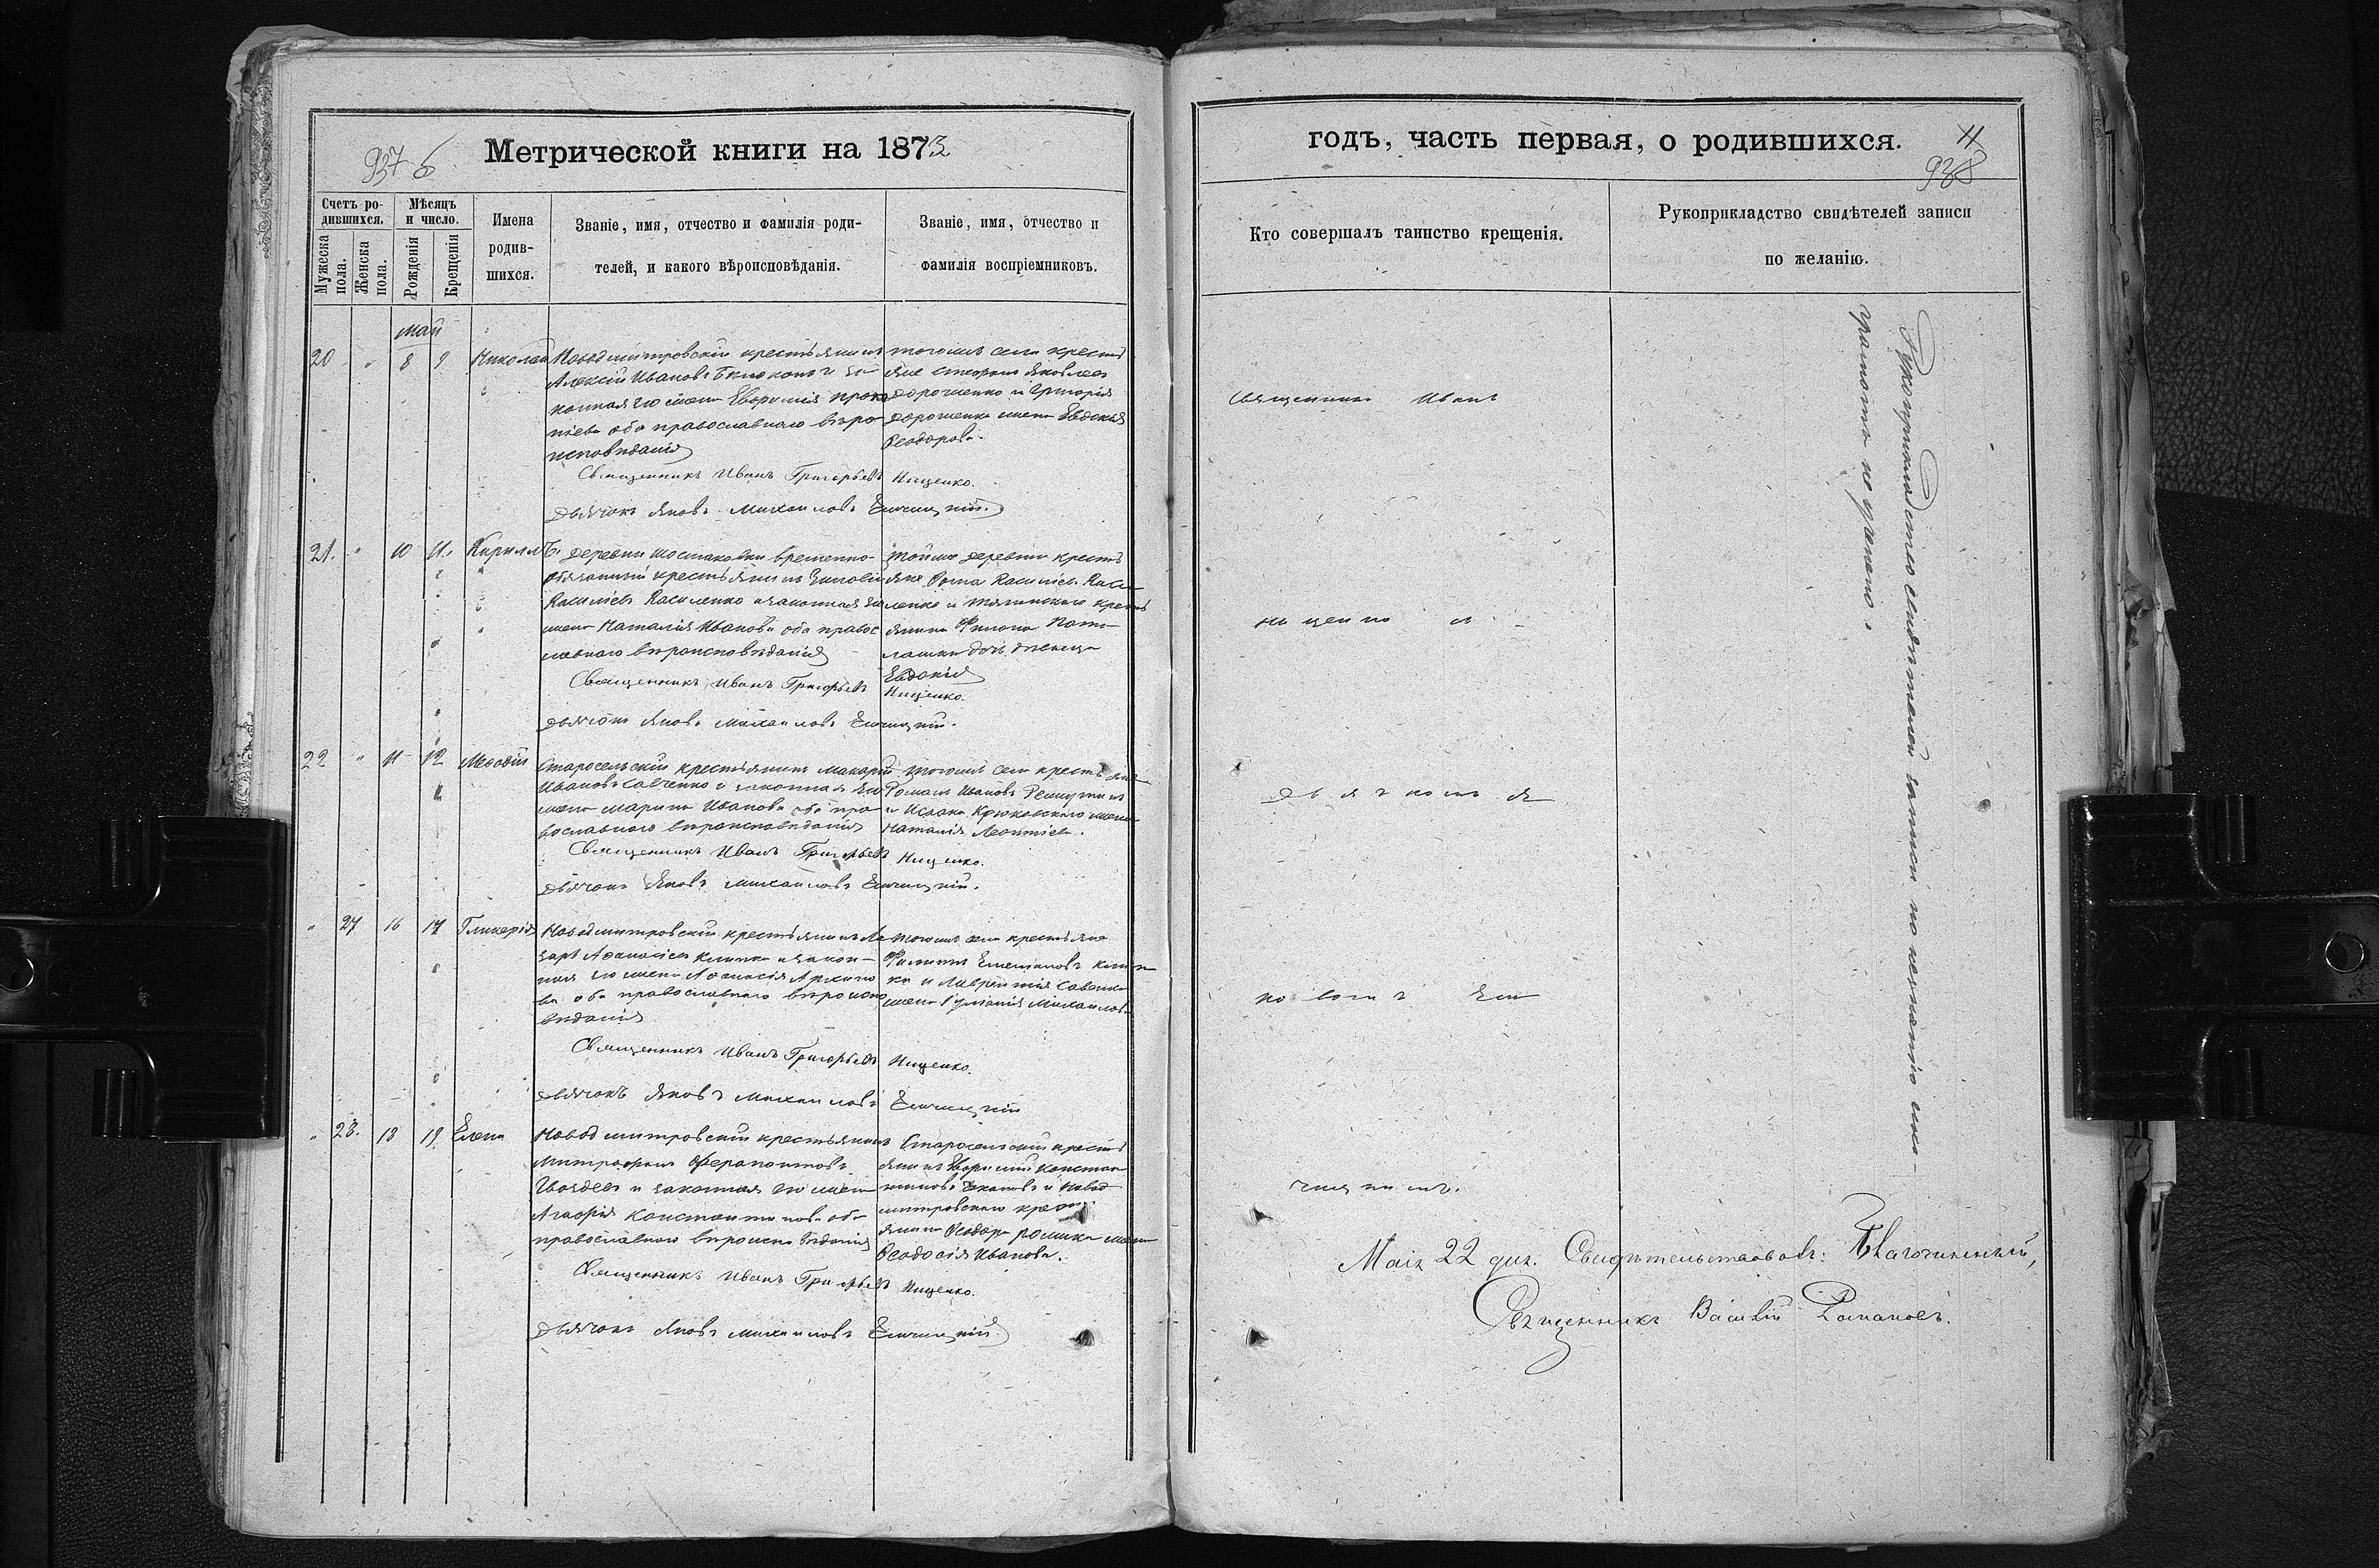 Метрической книги на 1873
937 б
Счетъ ро-
дившихся.
Мужеска
пола.
Женска
пола.
Мѣсяцъ
и число.
Рожденія
Крещенія
Имена
родив-
шихся.
Званіе, имя, отчество и фамилія роди-
телей, и какого вѣроисповѣданія.
Званіе, имя, отчество и
фамилія воспріемниковъ.
май
20 " 8 9 Николай
Новодмитровскій крестьянинъ
Алексій Ивановъ за-
конная его жена Евфимія Проко
піева оба православнаго вѣро
исповѣданія
тогожъ села кресть
яне Яковлевъ
Дорошенко и Григорія
Дорошенка жена Евдокія
Ѳеодорова.
Священникъ Иванъ Григорьевъ Нищенко.
Дьячокъ Яковъ Михаиловъ
21. " 10 11. Кириллъ.
Деревни временно-
обязанный крестьянинъ
Василіевъ Василенко и законная его
жена Наталія Иванова оба правос
лавнаго вѣроисповѣданія
тойже деревни кресть
яне Ѳома Василіевъ Васи
ленко и крестъ
янина Филипа
дочь дѣвица
Евдокія
Священникъ Иванъ Григорьевъ Нищенко.
Дьячокъ Яковъ Михаиловъ
22 " 11 12 Меѳодій
Старосельскій крестьянинъ Макарій
Ивановъ Савченко и законная его
жена Марина Иванова оба пра-
вославнаго вѣроисповѣданія
тогожъ села крестьяне
Романъ Ивановъ
и Исаака Крюковскаго жена
Наталія Леонтіева.
Священникъ Иванъ Григорьевъ Нищенко.
Дьячокъ Яковъ Михаиловъ
" 27 16 17 Гликерія
Новодмитровскій крестьянинъ Ла
зарь Аѳанасіевъ и закон-
ная его жена Аѳанасія Архипо
ва оба православнаго вѣроиспо
вѣданія
тогожъ села крестьяне
Филиппъ Емельяновъ
ка и Лаврентія Савенка
жена Іуліанія Михаилова
Священникъ Иванъ Григорьевъ Нищенко.
Дьячокъ Яковъ Михаиловъ
" 28. 18 19 Елена
Новодмитровскій крестьянинъ
Митрофанъ Ферапонтовъ
Гвоздевъ и законная его жена
Агафія Константинова оба
православнаго вѣроисповѣданія
Старосельскій кресть
янинъ Евфимій Констан
тиновъ и Новод
митровскаго кресть
янина Ѳеодора жена
Ѳеодосія Иванова.
Священникъ Иванъ Григорьевъ Нищенко.
Дьячокъ Яковъ Михаиловъ
годъ, часть первая, о родившихся.
11
938
Кто совершалъ таинство крещенія.
Рукоприкладство свидѣтелей записи
по желанію.
Священникъ Иванъ
Нищенко съ
дьячкомъ Я
ковомъ Ели
чицкимъ.
Рукоприкладство свидѣтелей записи по незнанію ими
грамоты не учинено.
Маія 22 дня. Свидѣтельствовалъ: Благочинный,
Священникъ Василій Романовъ.